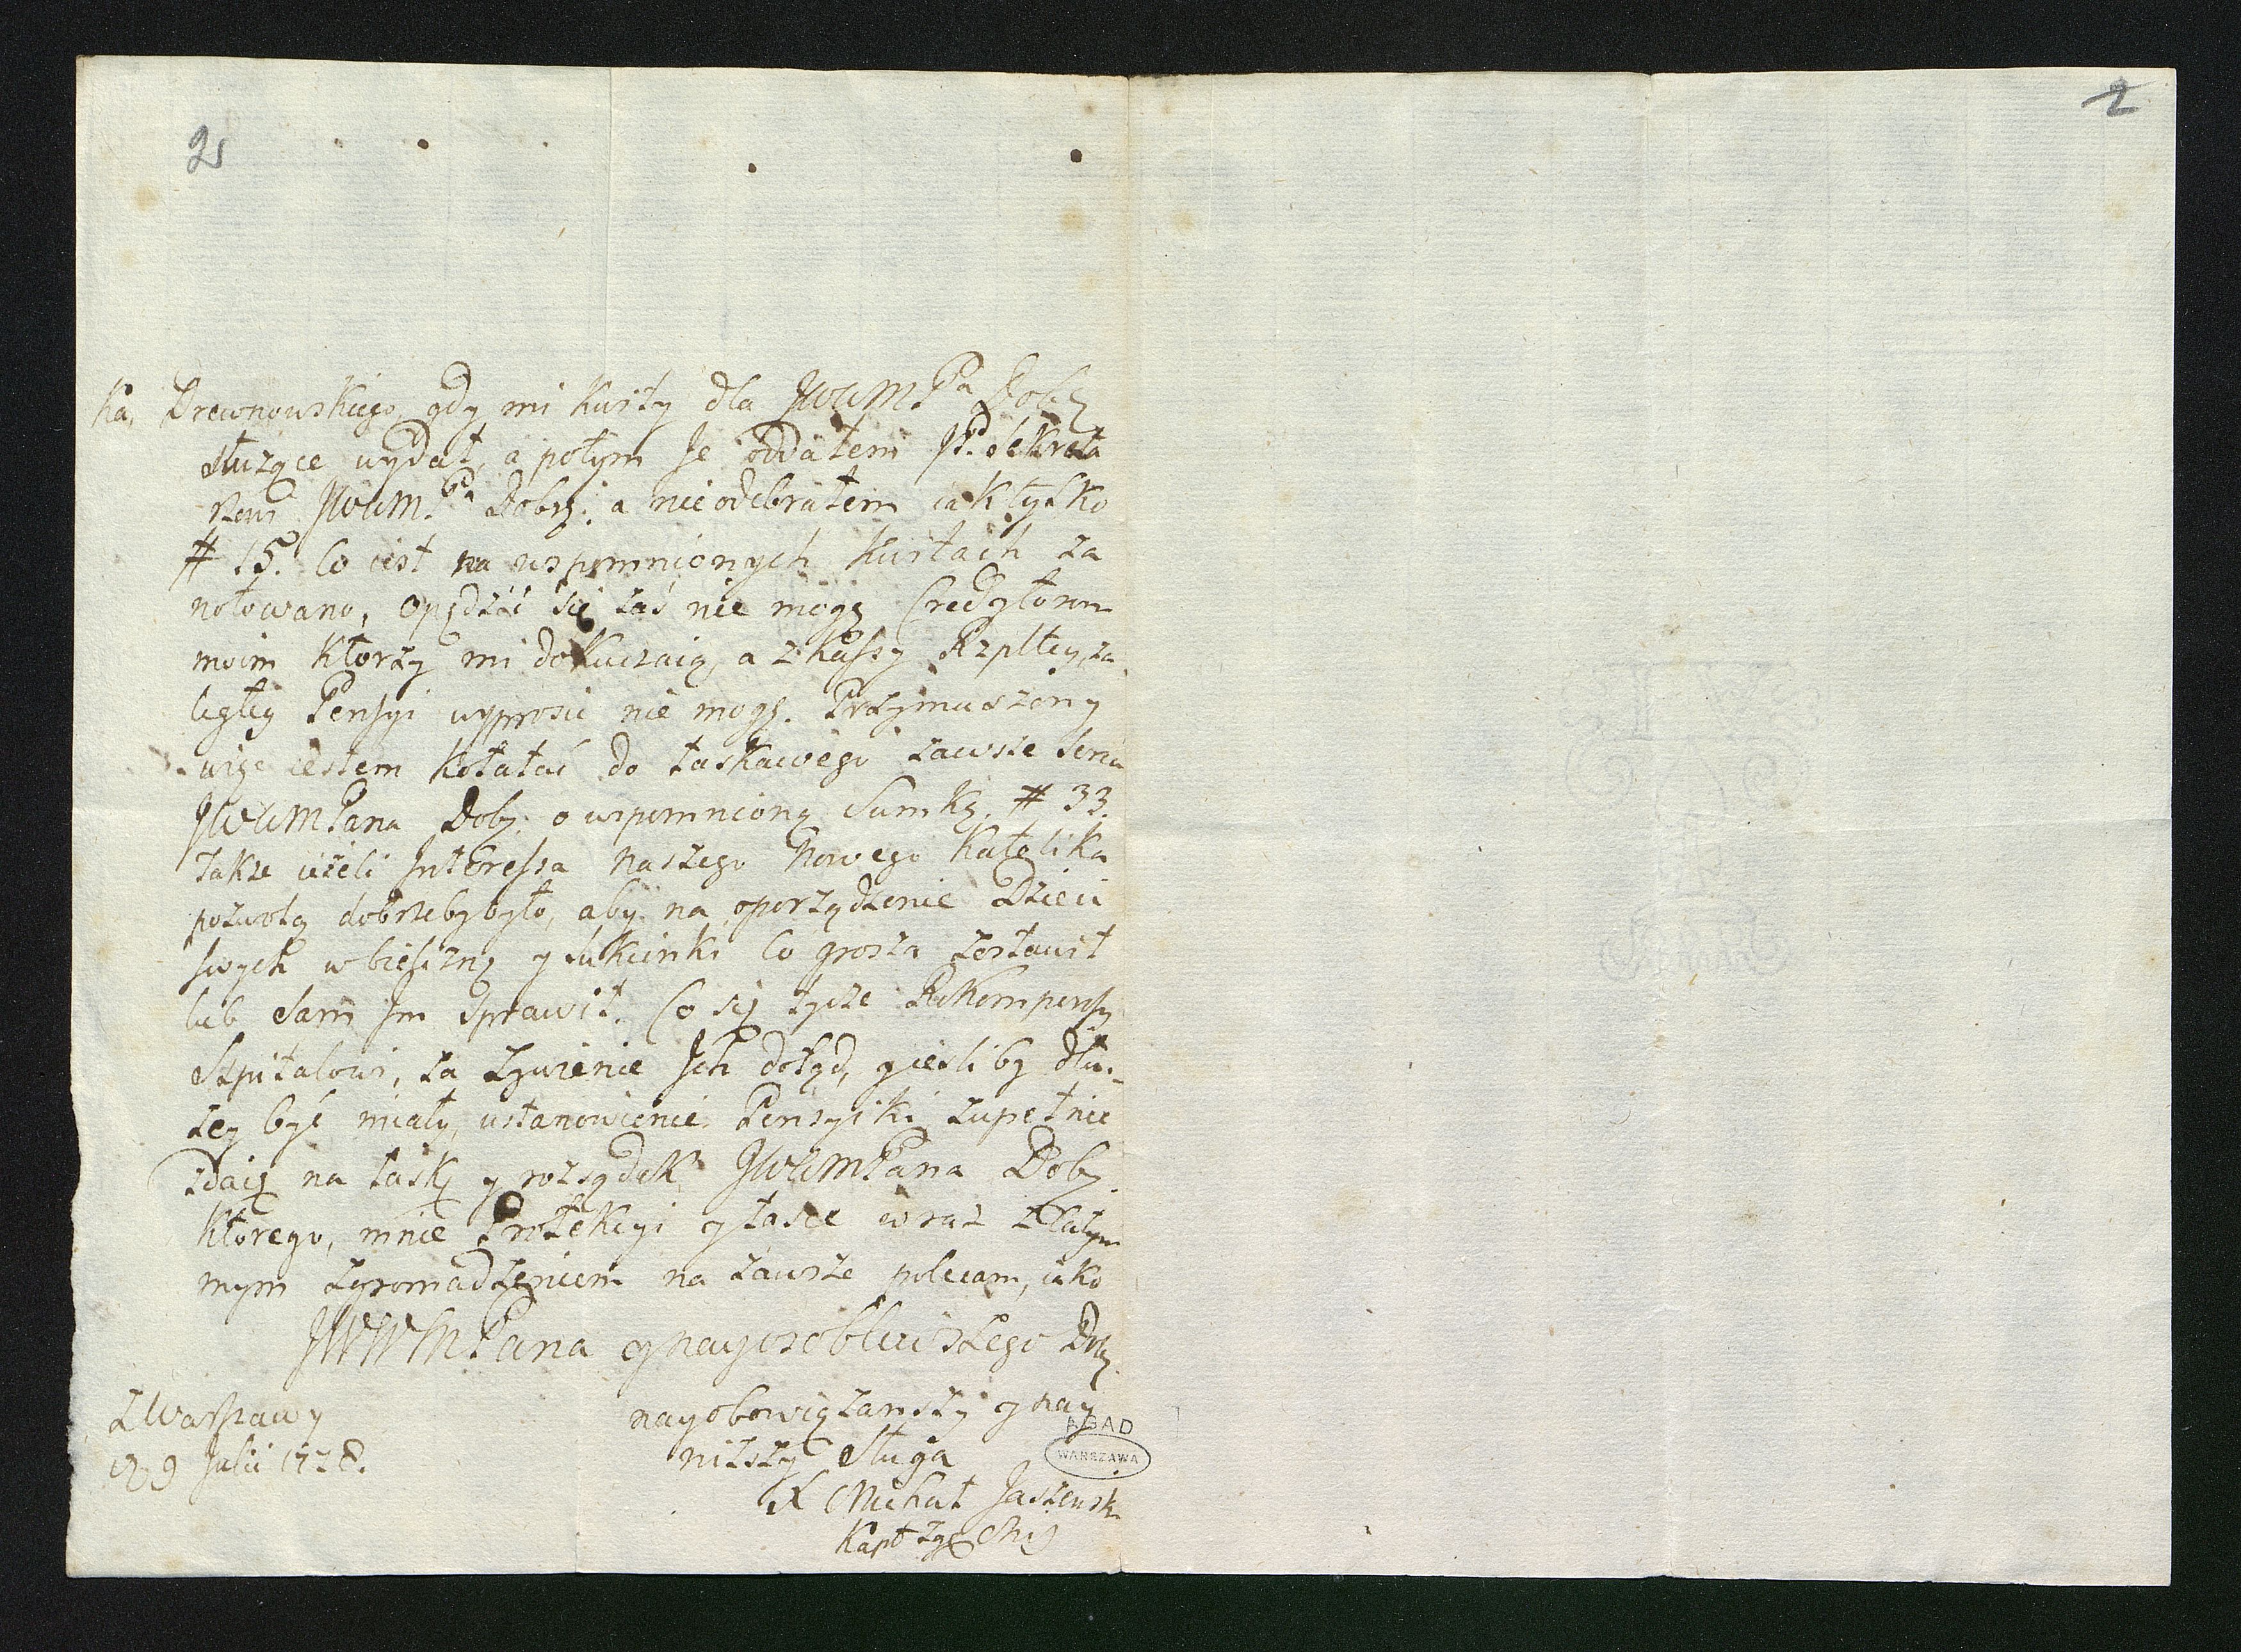 2
2
Ka, Drewnowskiego, gdy mi karty dla JWWM. Pa Dobg
służące wydał, a potym Je oddałem JP. Sekreta
rzowi JWWM. Pa Dobrg: a nie odebrałem iak tylko
# 15. Co iest na wspomnionych kartach za
notowano, opędzić się zaś nie mogę Credytorom
moim ktorzy mi dokuczaią, a z kassy Rzpltey, za
ległey Pensyi wyprosić nie mogę. Przymuszony
więc iestem kołatać do łaskawego zawsze serca
JWWMPana Dobg: o wspomnioną Sumkę. # 33.
Także ieżeli Interessa naszego Nowego Katolika
pozwolą dobrzeby było, aby na oporządzenie Dzieci
swych w bieliznę y sukienki Co grosza zostawił
lub Sam Im sprawił. Co się tycze Rekompensy
Szpitalowi, za żywienie Ich dotąd, y iesliby dłu-
żey być miały, ustanowienie Pensyiki zupełnie
zdaię na łaskę y rozsądek JWWMPana Dobg.
ktorego, mnie Protekcyi y łasce wraz z Całym
mym zgromadzeniem na zawsze polecam, iako
JWWMPana y nayosobliwszego Dobg
nayobowiązanszy y nay
niższy Sługa
X Michał
Kapł Zgr Mis
z Warszawy
9 Julii 1778.
AGAD
WARSZAWA